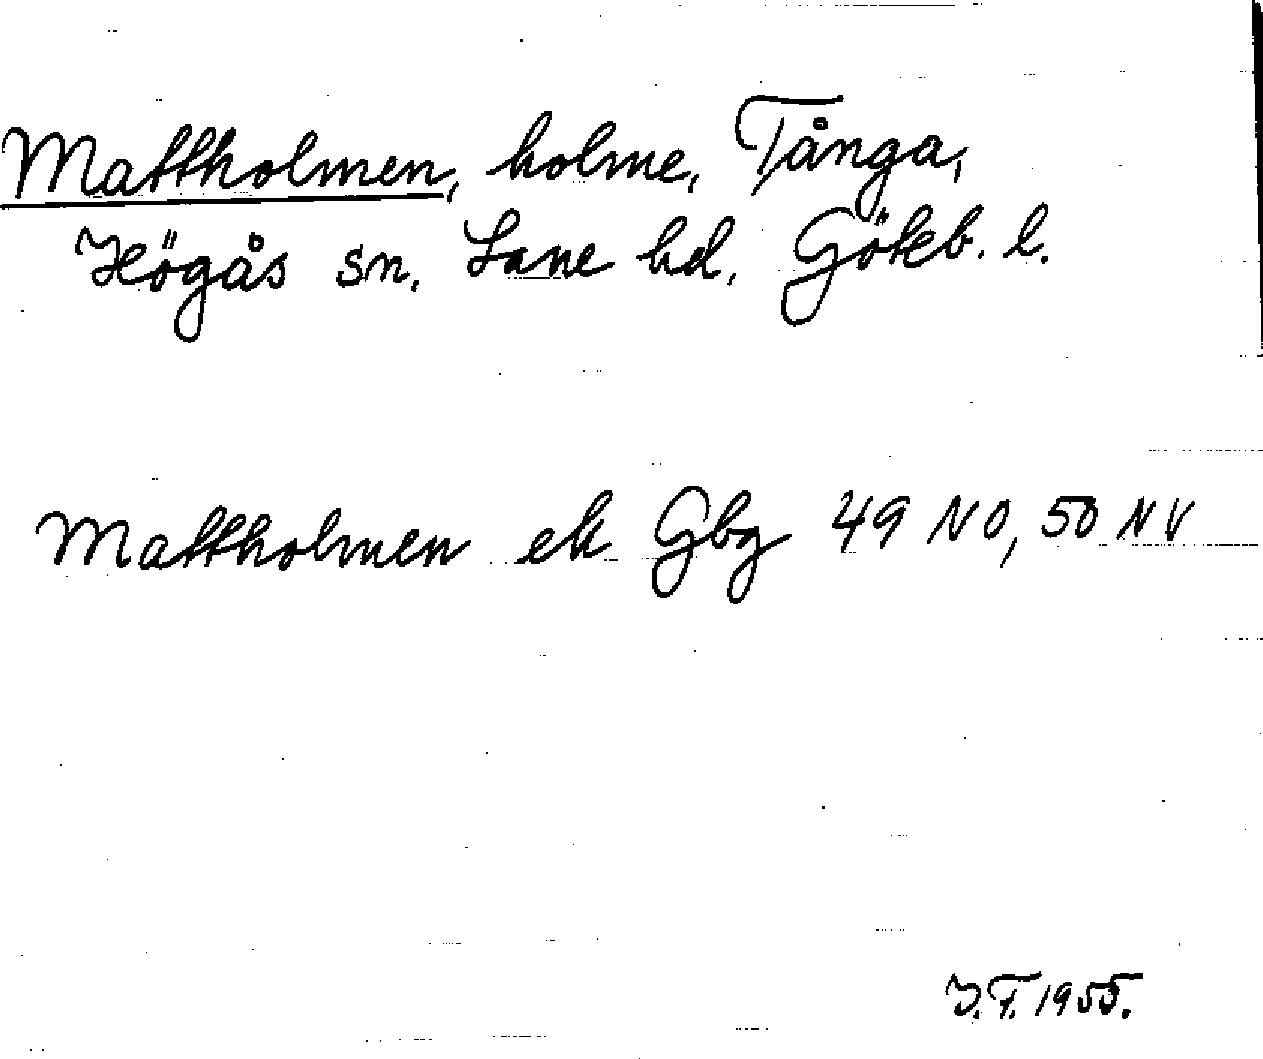 Mattholmen, holme, Tånga,
Högås sn. Lane hd. Göteb. l.
Mattholmen ek Gbg 49 NO, 50 NV
J.F. 1955.